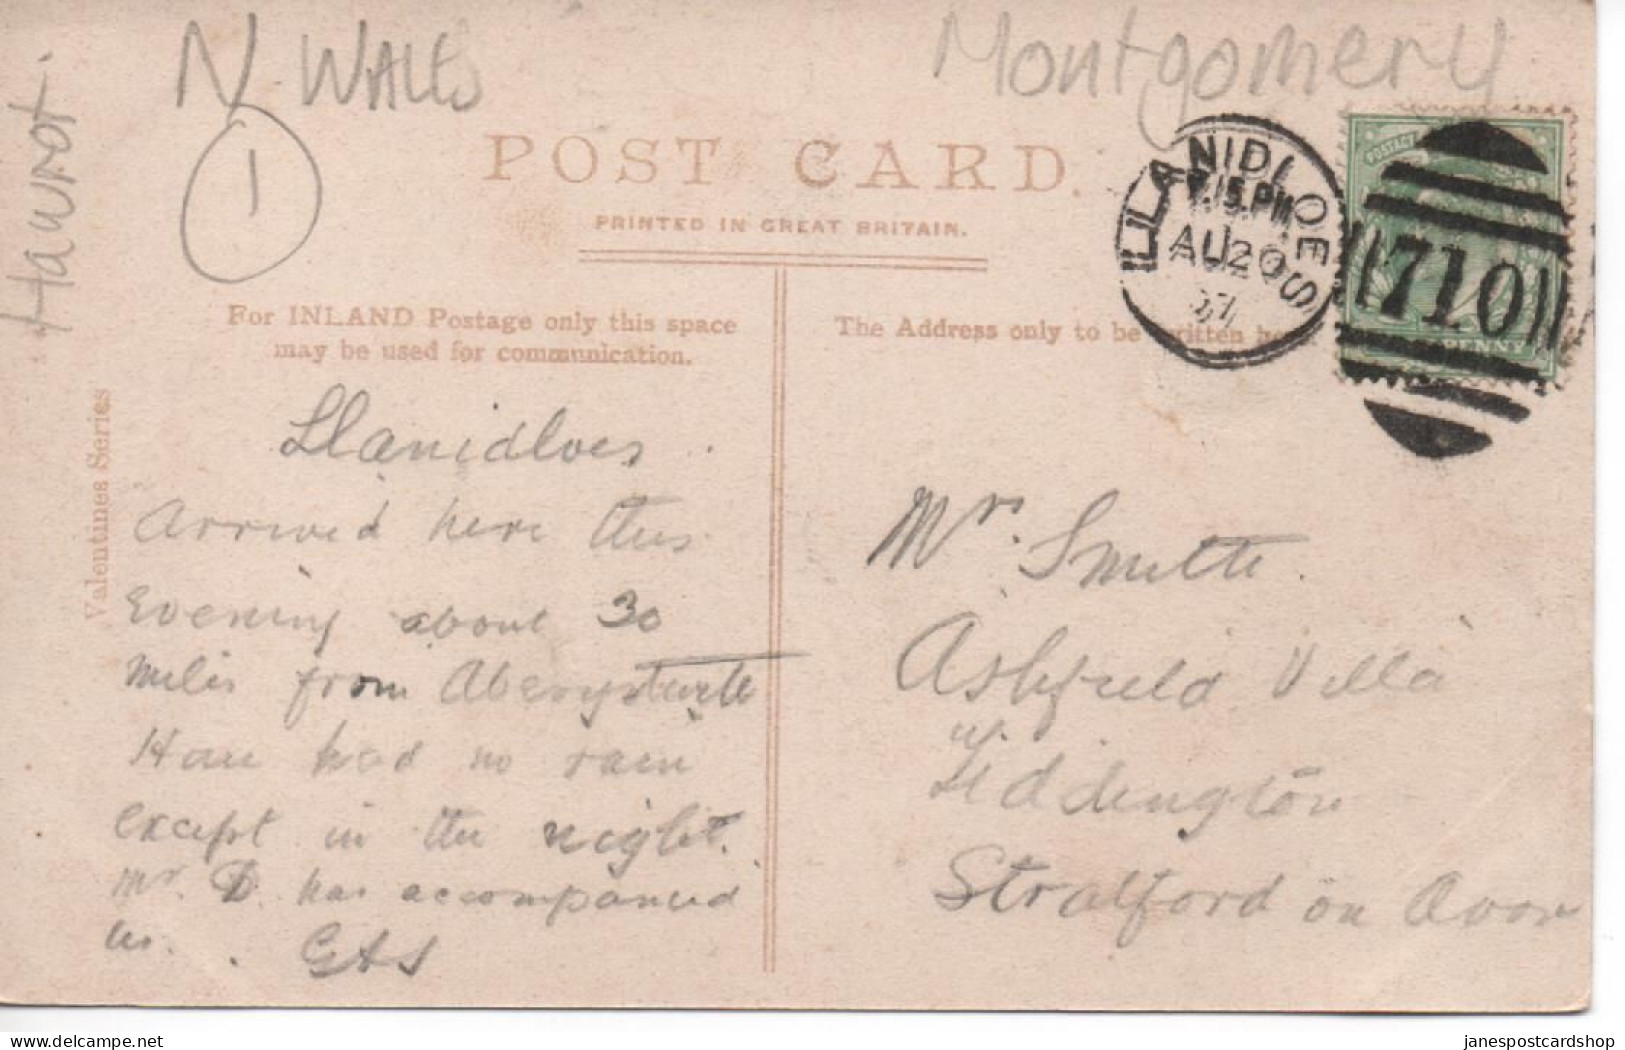 N WALES
Montgomery
1
Hawrot.
POST CARD.
PRINTED IN GREAT BRITAIN.
For INLAND Postage only this space
may be used for communication.
The Address only to be written
LLANIDLOES
7.15.PM
AU 20
07
710
POSTAGE
PENNY
Valentines Series
Llanidloes.
Arrived here this
Evening about 30
miles from Aberystwith
Have had no rain
except in the night.
Mr. D. has accompanied
us. GAS
Mr. Smith.
Ashfield Villa
Tiddington
Stratford on Avon
janespostcardshop
delcampe.net